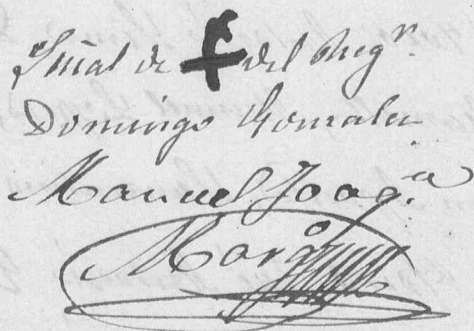 Señal de + del Reg.or
Domingo Gonzalez
Manuel Joaq.n